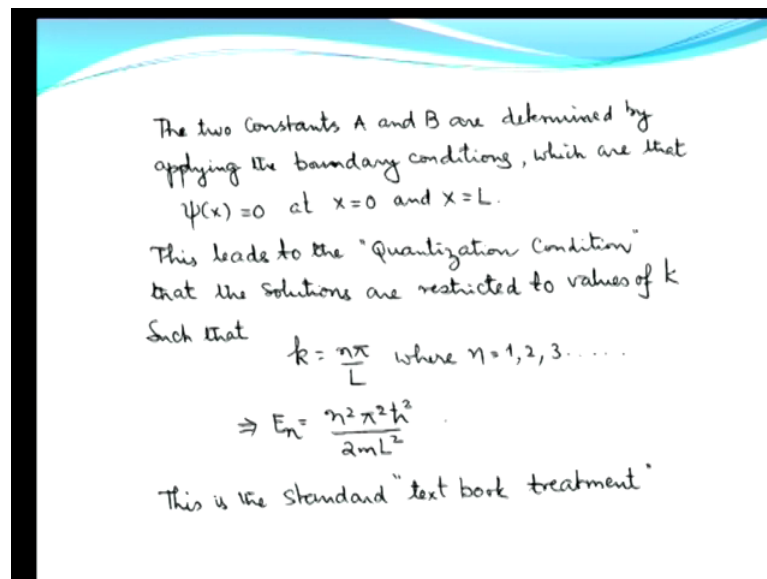 The two Constants A and B are determined by
applying the boundary conditions, which are that
ψ(x) = 0 at x=0 and x=L.
This leads to the "Quantization Condition"
that the solutions are restricted to values of k
Such that
k = nπ/L where n = 1, 2, 3.....
⇒ Eₙ = n²π²ħ²/2mL²
This is the standard "text book treatment"